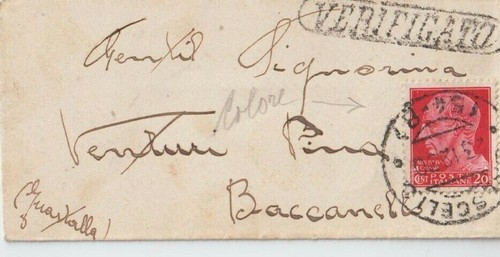 VERIFICATO
Gentil Signorina
Colore →
Venturi Pina
Baccanello
(Guastalla)
POSTE
ITALIANE
CENT 20
SCELT